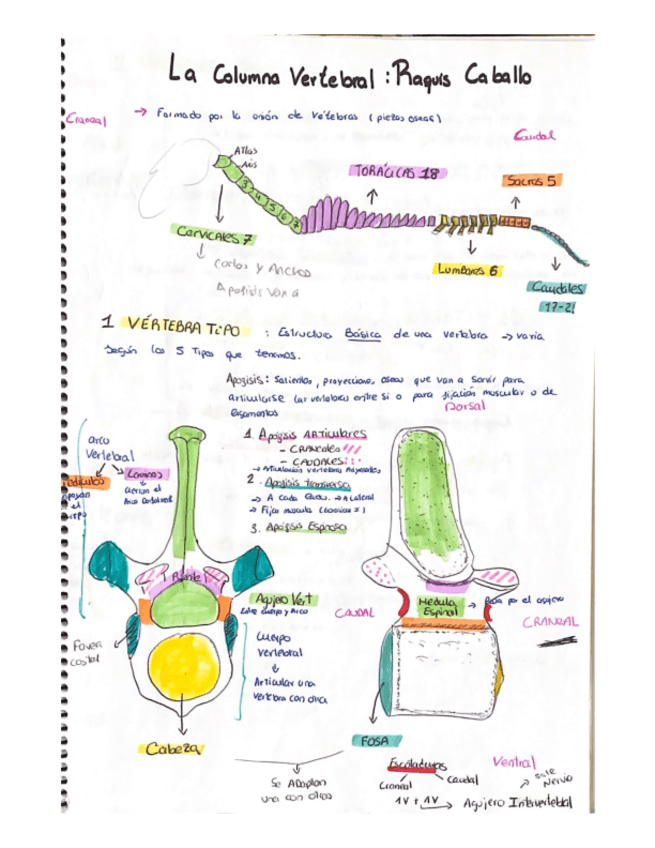 La Columna Vertebral : Raquis Caballo
→ Formado por la unión de vértebras (piezas óseas)
Craneal
Caudal
Atlas
Axis
TORÁCICAS 18
Sacras 5
3 4 5 6 7
Cervicales 7
Cortos y Anchos
Lumbares 6
Caudales
17-21
1 VÉRTEBRA TIPO : Estructura Básica de una vertebra → varia
según los 5 Tipos que tenemos.
Apófisis : salientes, proyecciones óseas que van a servir para
articularse las vertebras entre si o para fijación muscular o de
ligamentos
Dorsal
1. Apófisis ARTICULARES
- CRANEALES
- CAUDALES
→ Articulación vertebras Adyacentes
2. Apófisis transversa
→ A cada lado. → A Lateral
→ Fijar musculo
3. Apófisis Espinosa
arco
Vertebral
Láminas
cierran el
Arco Dorsalmente
el
Agujero Vert
entre cuerpo y Arco
CAUDAL
Médula
Espinal
→ Pasa por el agujero
CRANEAL
Fovea
costal
Cuerpo
vertebral
Articular una
vertebra con otra
Cabeza
FOSA
Se Adaptan
una con otras
Escotaduras
Craneal
Caudal
Ventral
sale
Nervio
1V + 1V → Agujero Intervertebral